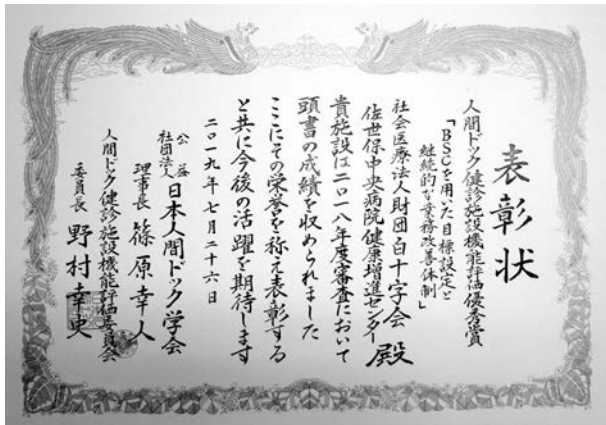 表彰状
人間ドック健診施設機能評価優秀賞
「BSCを用いた目標設定と
継続的な業務改善体制」
社会医療法人財団白十字会
佐世保中央病院健康増進センター殿
貴施設は二〇一八年度審査において
頭書の成績を収められました
ここにその栄誉を称え表彰する
と共に今後の活躍を期待します
二〇一九年七月二十六日
公益社団法人日本人間ドック学会
理事長篠原幸人
人間ドック健診施設機能評価委員会
委員長野村幸史